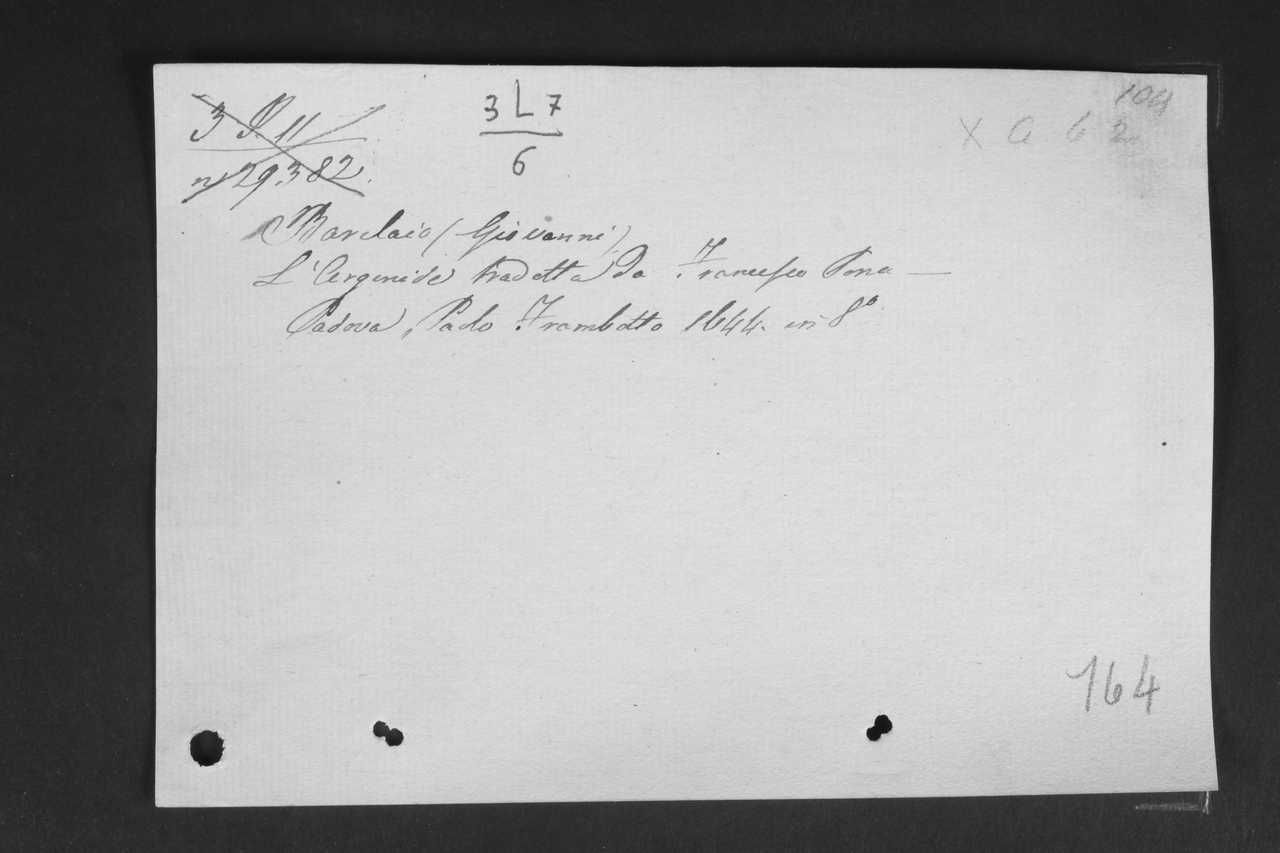 3 P. 11
n° 29382.
3 L 7
6
104
X a 6 2
Barclaio (Giovanni)
L'Argenide tradotta da Francesco Pona —
Padova, Paolo Frambotto 1644. in 8°
164